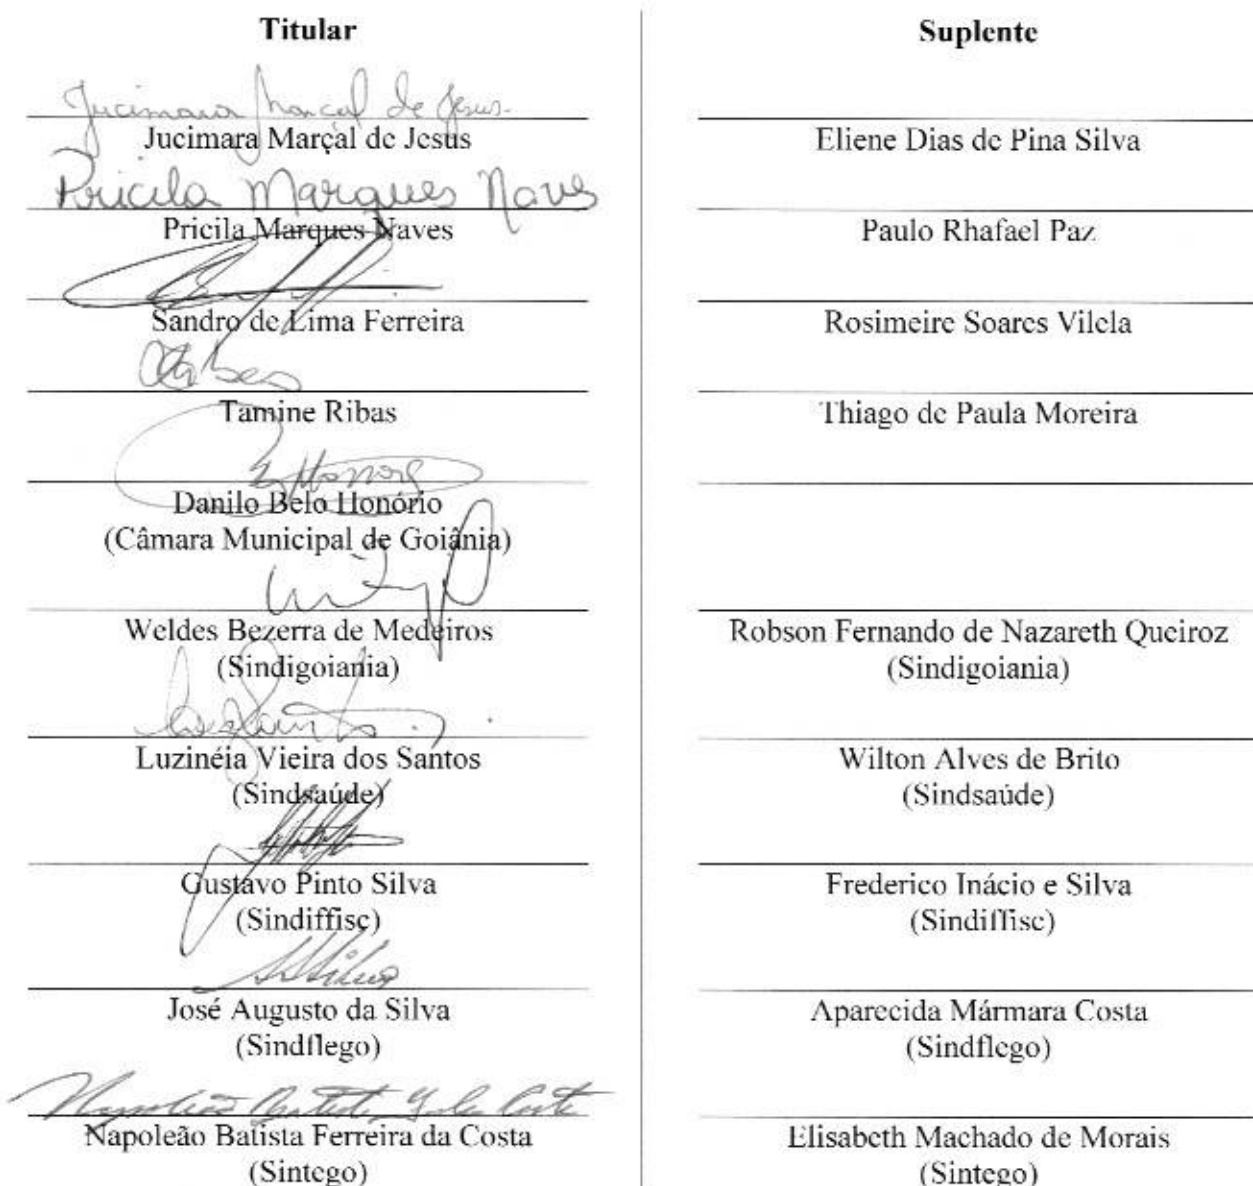 Titular
Jucimara Marçal de Jesus
Jucimara Marçal de Jesus
Pricila Marques Naves
Pricila Marques Naves
Sandro de Lima Ferreira
Tamine Ribas
Danilo Belo Honório
(Câmara Municipal de Goiânia)
Weldes Bezerra de Medeiros
(Sindigoiania)
Luzinéia Vieira dos Santos
(Sindsaúde)
Gustavo Pinto Silva
(Sindiffisc)
José Augusto da Silva
(Sindflego)
Napoleão Batista
Napoleão Batista Ferreira da Costa
(Sintego)
Suplente
Eliene Dias de Pina Silva
Paulo Rhafael Paz
Rosimeire Soares Vilela
Thiago de Paula Moreira
Robson Fernando de Nazareth Queiroz
(Sindigoiania)
Wilton Alves de Brito
(Sindsaúde)
Frederico Inácio e Silva
(Sindiffisc)
Aparecida Mármara Costa
(Sindflego)
Elisabeth Machado de Morais
(Sintego)